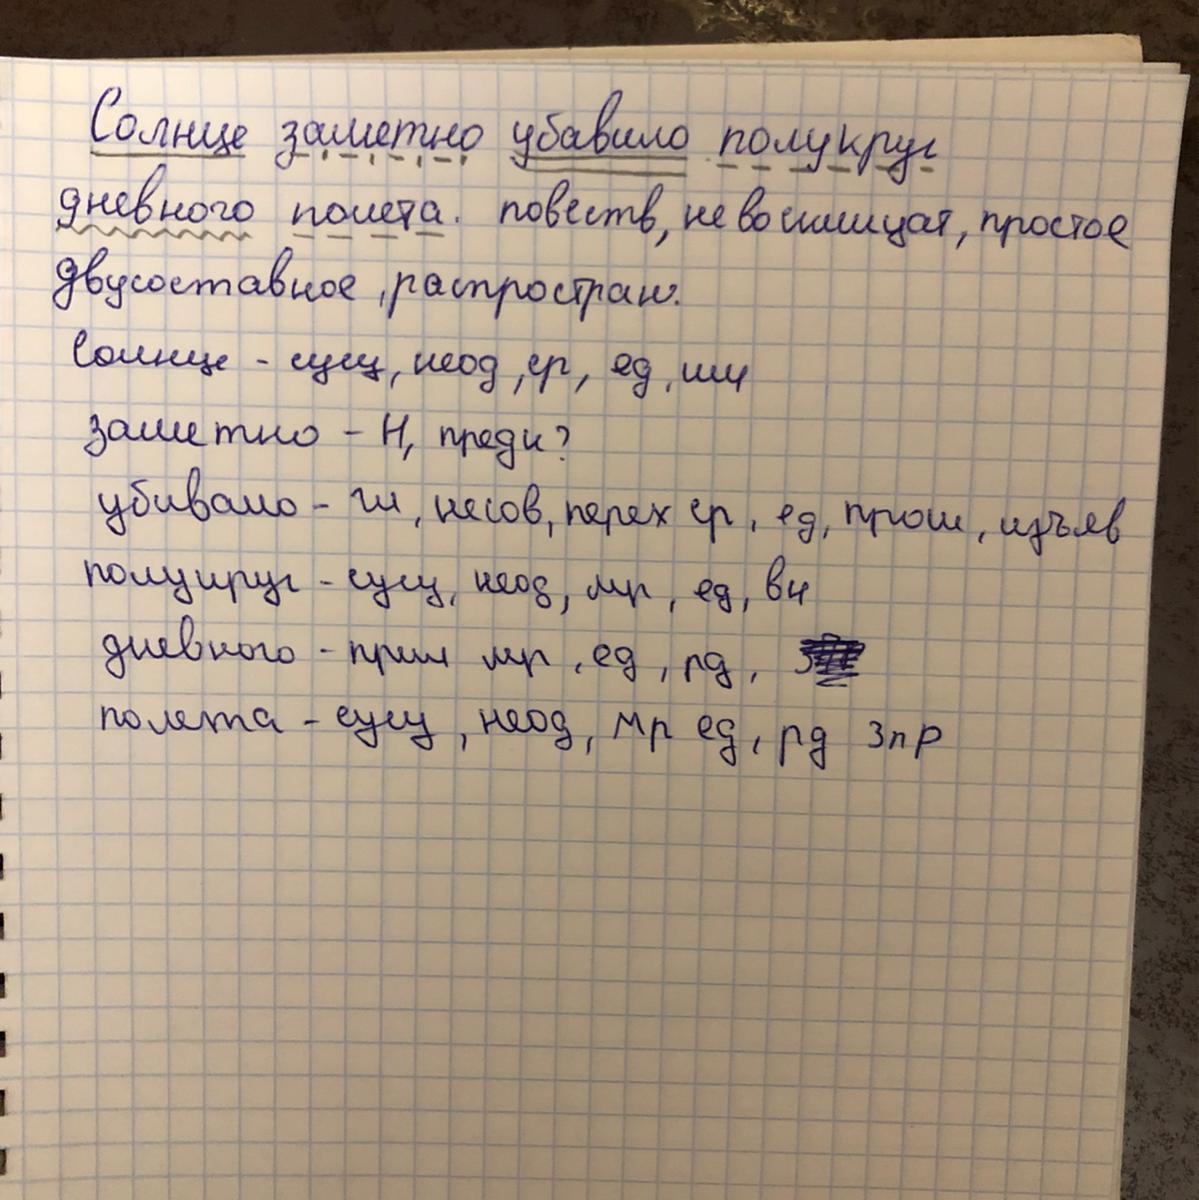 Солнце заметно убавило полукруг
дневного полета. повеств, невосклицат, простое
двусоставное, распростран.
Солнце - сущ, неод, ср, ед, им
заметно - Н, предик?
убивало - гл, несов, перех ср, ед, прош, изъяв
полукруг - сущ, неод, мр, ед, вч
дневного - прил мр, ед, рд,
полета - сущ, неод, мр ед, рд 3пр